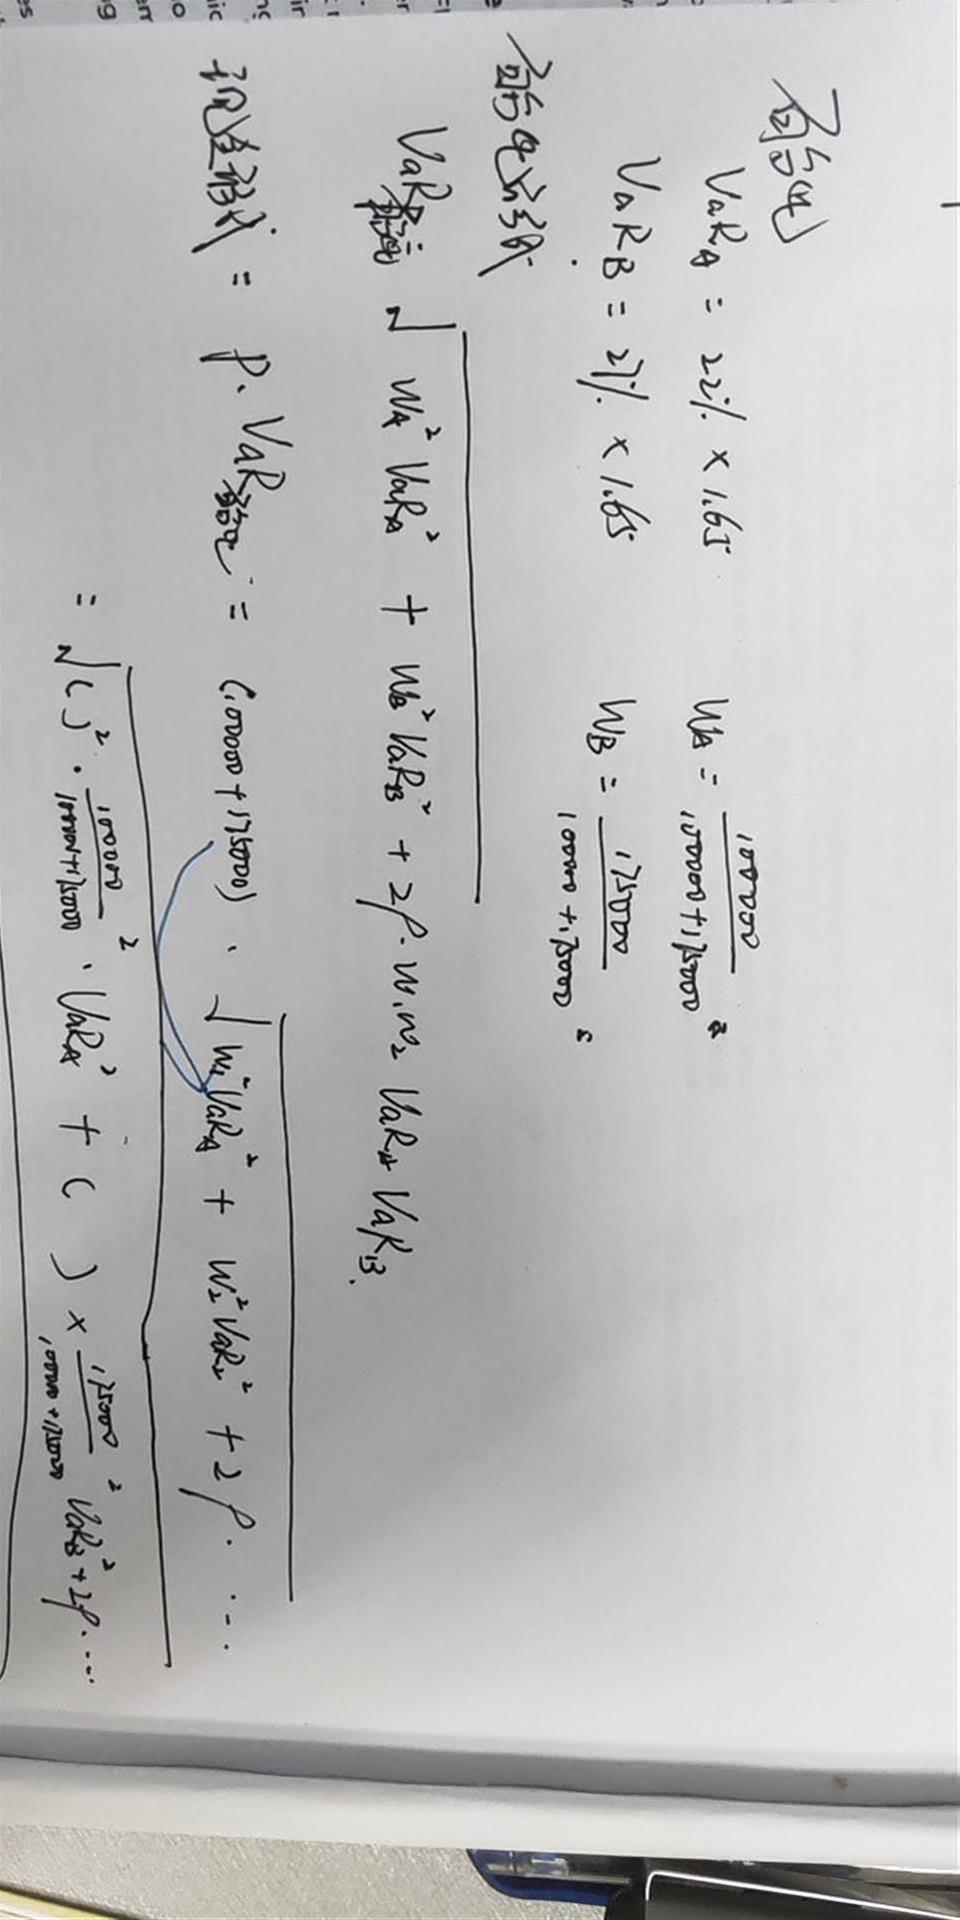 百分比
VaRA = 22% × 1.65 WA = 100000 / 100000+175000
VaRB = 27% × 1.65 WB = 175000 / 100000+175000
百分比形式
VaR √ WA² VaRA² + WB² VaRB² + 2ρ·W1W2 VaRA VaRB.
形式 = P. VaR百分比 = (100000+175000) · √ W1²VaRA² + W2²VaR2² + 2ρ. ...
= √( )² · 100000 / 100000+175000 ² · VaRA² + ( ) × 175000 / 100000+175000 ² VaRB² + 2ρ. ...